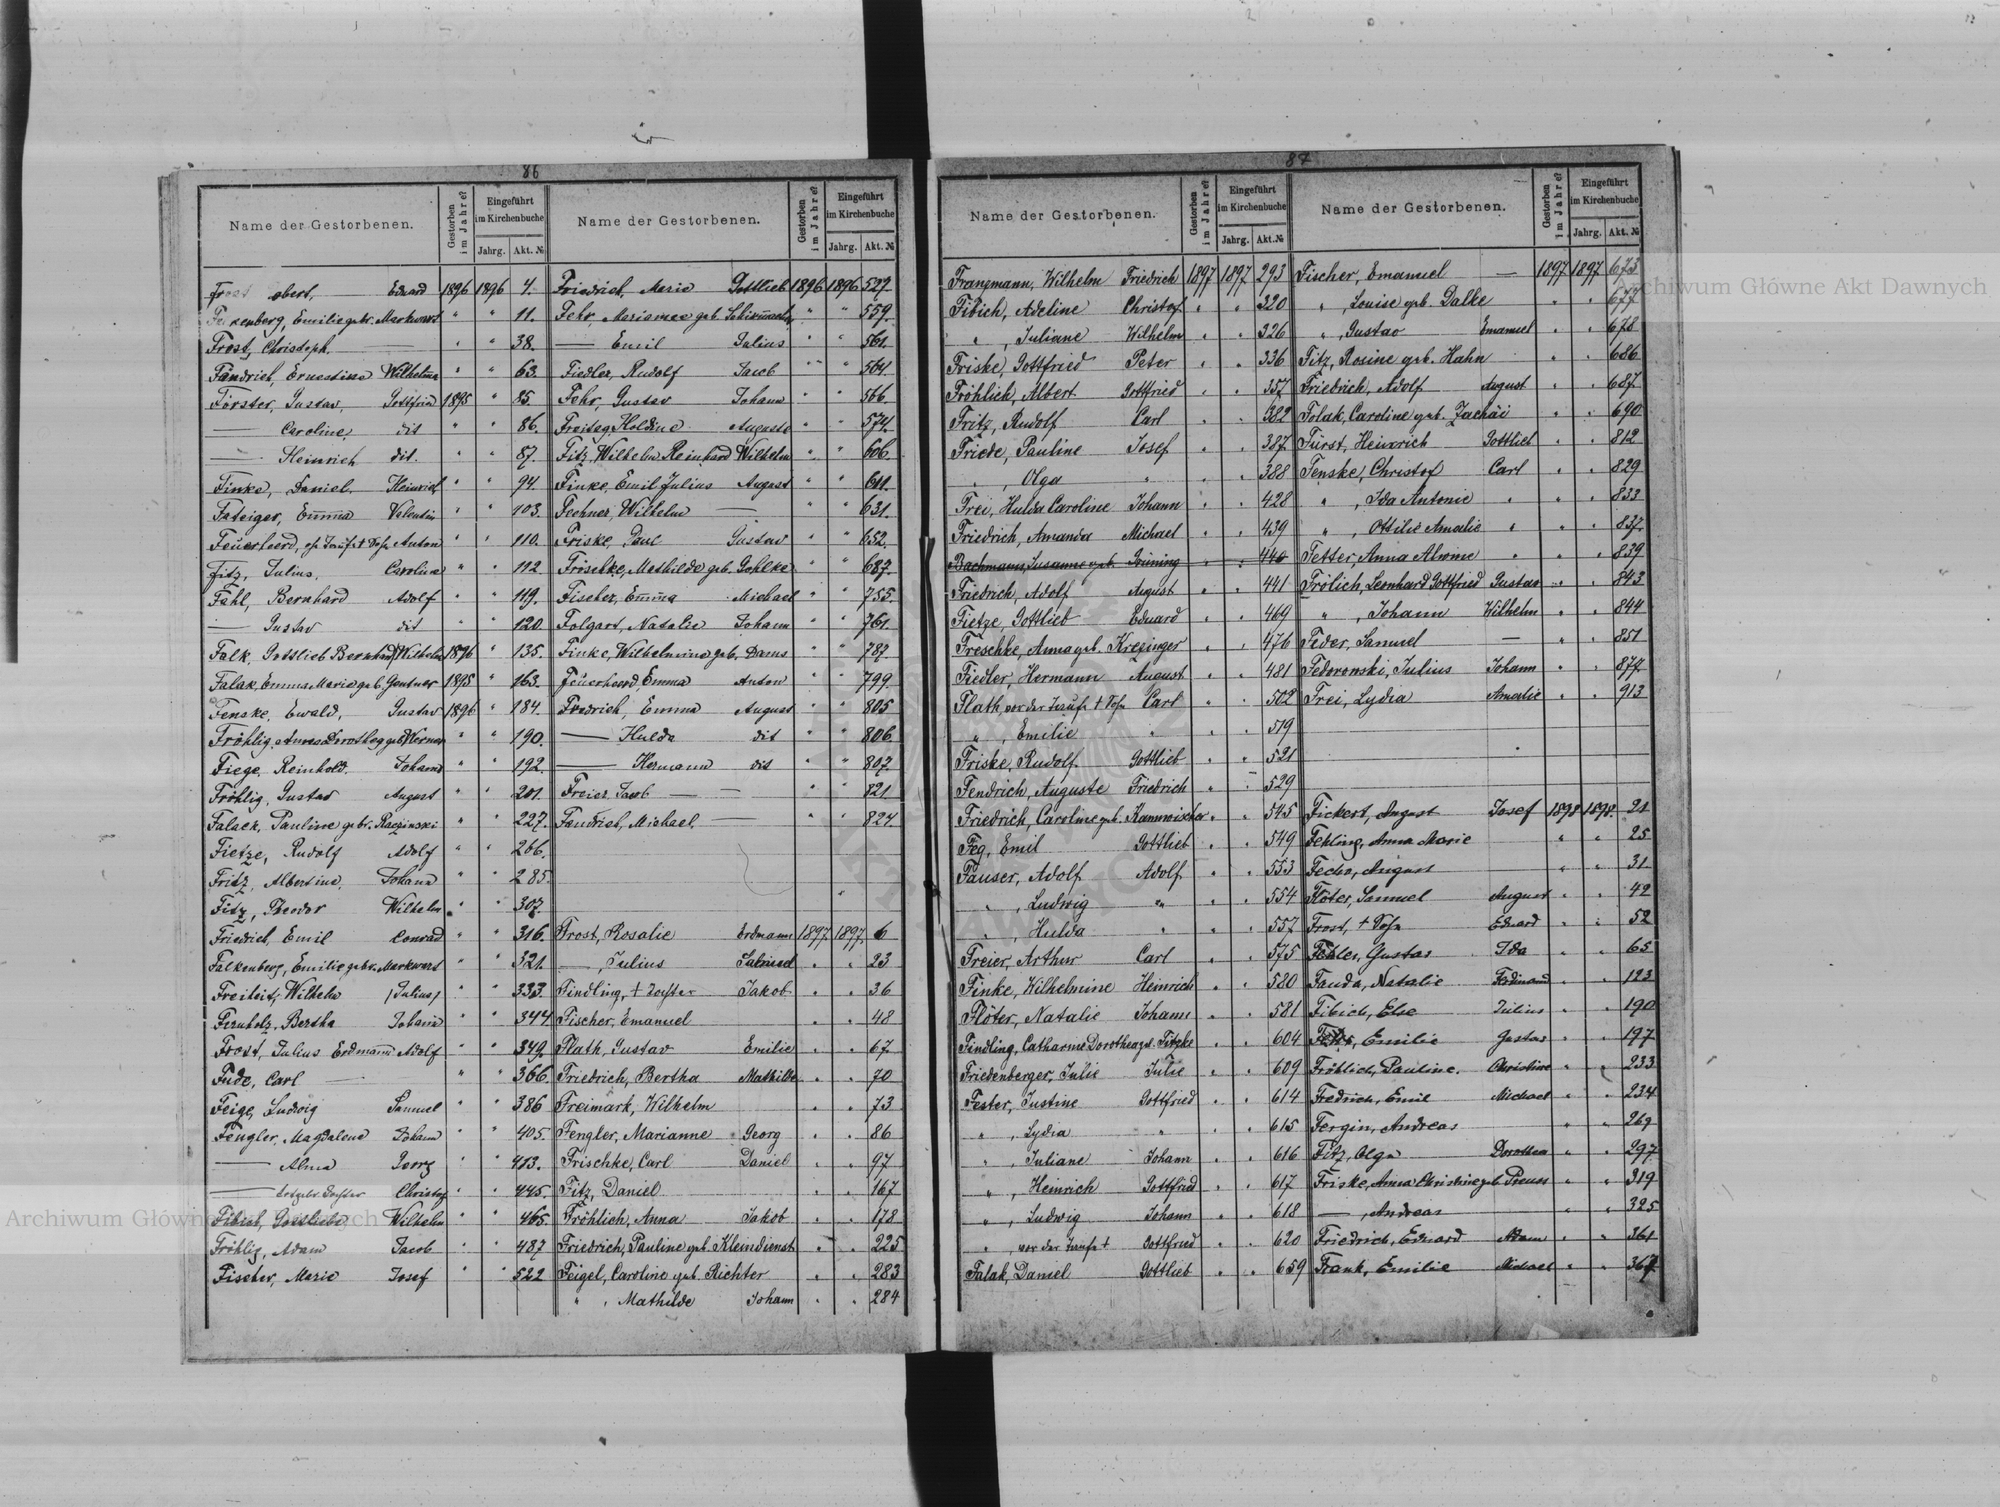 86
Name der Gestorbenen. Gestorben im Jahre? Eingeführt im Kirchenbuche Jahrg. Akt. № Name der Gestorbenen. Gestorben im Jahre? Eingeführt im Kirchenbuche Jahrg. Akt. №
Frost obert, — Eduard 1896 1896 4.
Falkenberg, Emilie gebr. Markwart " " 11.
Frost, Christoph — " " 38.
Fandrich, Ernestine Wilhelmine " " 63.
Förster, Gustav, Gottfried 1895 " 85.
— Caroline, dit " " 86.
— Heinrich dit. " " 87.
Finke, Daniel. Heinrich " " 94.
Fateiger, Emma Valentin " " 103.
Feuerheerd, Anton " " 110.
Fitz, Julius, Carolina " " 112
Fahl, Bernhard Adolf " " 119.
— Gustav dit " " 120
Falk, Gottlieb Bernhard Wilhelm 1896 " 135.
Falak, Emma Marie geb. Gentner 1895 " 163.
Fenske, Ewald, Gustav 1896 " 184.
Fröhlig, Anna Dorothea geb. Werner " " 190.
Fiege, Reinhold. Johann " " 192.
Fröhlig, Gustav August " " 201.
Falack, Pauline gebr. Raczinski " " 227.
Fietze, Rudolf Adolf " " 266.
Fritz, Albertine, Johann " " 285.
Fitz, Theodor Wilhelm " " 307.
Friedrich, Emil Conrad " " 316.
Falkenberg, Emilie gebr. Markwart " " 321.
Freiheit, Wilhelm /Julius/ " " 333.
Firnholz, Bertha Johann " " 344
Frost, Julius Erdmann Adolf " " 349.
Fude, Carl — " " 366.
Feige, Ludwig Samuel " " 386
Fengler, Magdalene Johann " " 405.
— Alma Georg " " 413.
— totgebr. Tochter Christof " " 445.
Fibich, Gottlieb Wilhelm " " 465.
Fröhlig, Adam Jacob " " 487
Fischer, Marie Josef " " 522
Friedrich, Marie Gottlieb 1896 1896 527.
Fehr, Mariamee geb. Schirmacher " " 559.
— Emil Julius " " 561.
Fiedler, Rudolf Jacob " " 564.
Fehr, Gustav Johann " " 566.
Freitag, Holdine Auguste " " 574.
Fitz, Wilhelm Reinhard Wilhelm " " 606
Finke, Emil Julius August " " 611.
Fechner, Wilhelm — " " 631.
Friske, Paul Gustav " " 652.
Frischke, Mathilde geb. Gohlke " " 687.
Fischer, Emma Michael " " 755.
Folgart, Natalie Johann " " 761.
Finke, Wilhelmine geb. Dams " " 787.
Feuerheerd, Emma Anton " " 799.
Fredrich, Emma August " " 805
— Hulda dit " " 806
— Hermann dit " " 807
Freier, Jacob — — " " 821
Fandrich, Michael — " " 824
Frost, Rosalie Erdmann 1897. 1897. 6
—, Julius " " 23
Findling, † Tochter Jakob " " 36
Fischer, Emanuel " " 48
Flath, Gustav Emilie " " 67
Friedrich, Bertha Mathilde " " 70
Freimark, Wilhelm " " 73
Fengler, Marianne Georg " " 86
Frischke, Carl Daniel " " 97
Fitz, Daniel " " 167
Fröhlich, Anna Jakob " " 178
Friedrich, Pauline geb. Kleindienst " " 225
Feigel, Caroline geb. Richter " " 283
" , Mathilde Johann " " 284
87
Name der Gestorbenen. Gestorben im Jahre? Eingeführt im Kirchenbuche Jahrg. Akt. № Name der Gestorbenen. Gestorben im Jahre? Eingeführt im Kirchenbuche Jahrg. Akt. №
Franzmann, Wilhelm Friedrich 1897 1897 293
Fibich, Adeline Christof " " 320
" , Juliane Wilhelm " " 326
Friske, Gottfried Peter " " 336
Fröhlich, Albert Gottfried " " 357
Fritz, Rudolf Carl " " 382
Friede, Pauline Josef " " 387
" , Olga " " " 388
Frei, Hulda Caroline Johann " " 428
Friedrich, Amanda Michael " " 439
Bachmann, Susanne geb. Grüning " " 440
Friedrich, Adolf August " " 441
Fietze, Gottlieb Eduard " " 469
Freschke, Anna geb. Krezinger " " 476
Fiedler, Hermann August " " 481
Flath, vor der Taufe † Sohn Carl " " 502
" , Emilie " " " 519
Friske, Rudolf Gottlieb " " 521
Fendrich, Auguste Friedrich " " 529
Friedrich, Caroline geb. Kannwischer " " 545
Feg, Emil Gottlieb " " 549
Fauser, Adolf Adolf " " 553
" , Ludwig " " " 554
" , Hulda " " " 557
Freier, Arthur Carl " " 575
Finke, Wilhelmine Heinrich " " 580
Flöter, Natalie Johann " " 581
Findling, Catharina Dorothea geb. Fitzke " " 604
Friedenberger, Julie Julie " " 609
Fester, Justine Gottfried " " 614
" , Lydia " " " 615
" , Juliane Johann " " 616
" , Heinrich Gottfried " " 617
" , Ludwig Johann " " 618
" , vor der Taufe † Gottfried " " 620
Falak, Daniel Gottlieb " " 659
Fischer, Emanuel — 1897 1897 673
" , Louise geb. Dalke " " 677
" , Gustav Emanuel " " 678
Fitz, Rosine geb. Hahn " " 686
Friedrich, Adolf August " " 687
Folak, Caroline geb. Zachäi " " 690
Fürst, Heinrich Gottlieb " " 812
Fenske, Christof Carl " " 829
" , Ida Antonie " " " 833
" , Ottilie Amalie " " " 837
Fetter, Anna Alwine " " " 839
Frölich, Leonhard Gottfried Gustav " " 843
" , Johann Wilhelm " " 844
Feder, Samuel — " " 851
Fedorowski, Julius Johann " " 877
Frei, Lydia Amalie " " 913
Fickert, August Josef 1898 1898. 21
Fehling, Anna Marie " " 25
Fechr, August " " 31
Flöter, Samuel August " " 42
Frost, † Sohn Eduard " " 52
Fehler, Gustav Ida " " 65
Fauda, Natalie Ferdinand " " 123
Fibich, Else Julius " " 190
Emilie Gustav " " 197
Fröhlich, Pauline. Christine " " 233
Fredrich, Emil Michael " " 234
Fergin, Andreas " " 269
Fitz, Olga Dorothea " " 297
Friske, Anna Christine geb. Preuss " " 319
—, Andreas " " 325
Friedrich, Eduard Adam " " 361
Frank, Emilie Michael " " 367
Archiwum Główne Akt Dawnych
Archiwum Główne Akt Dawnych